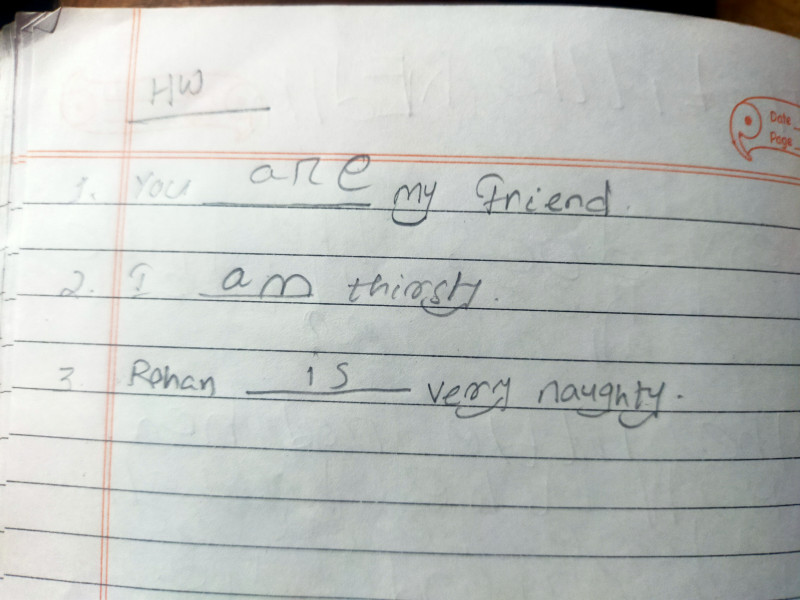 HW
Date
Page
1. You are my Friend.
2. I am thirsty.
3. Rohan is very naughty.